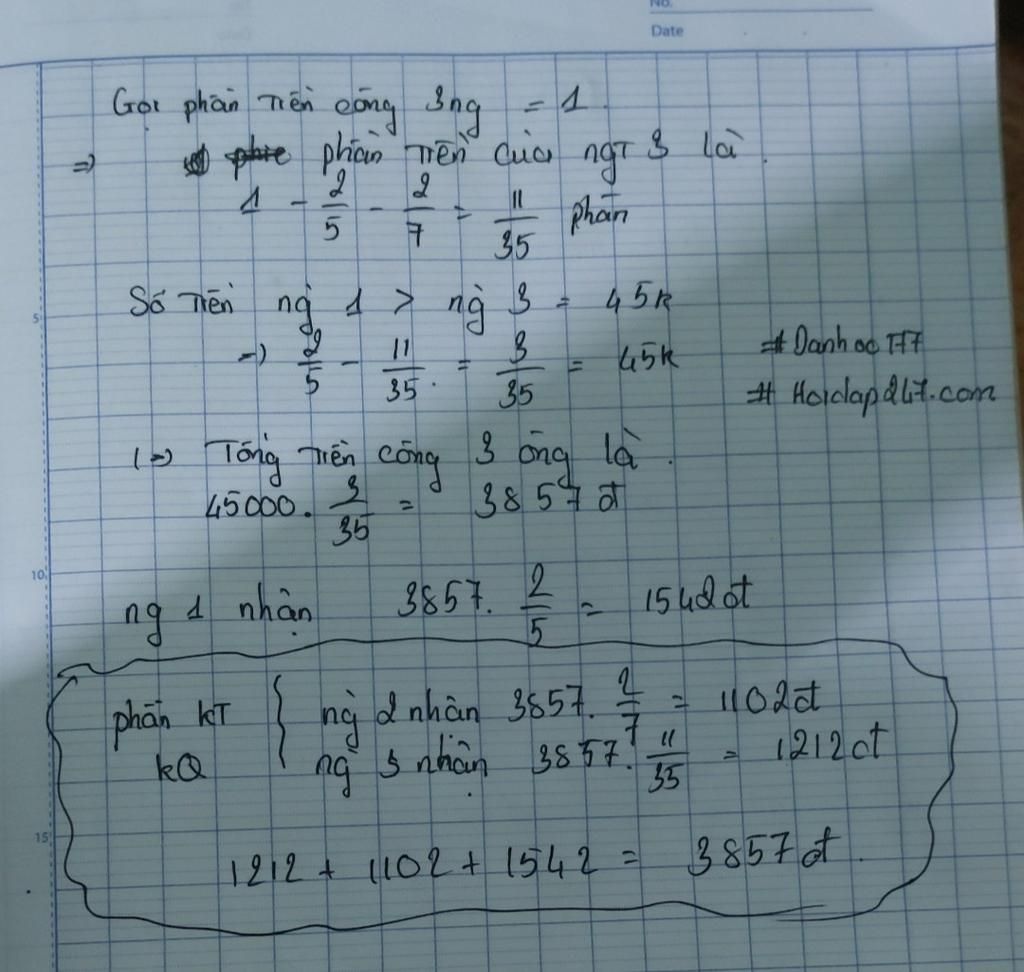 No.
Date
Gọi phần tiền công 3ng = 1
=> phần tiền của ngT 3 là.
1 - 2/5 - 2/7 = 11/35 phần
Số tiền ng 1 > ng 3 = 45k
=> 2/5 - 11/35 = 3/35 = 45k
# Danhoc777
# Hoidap247.com
(=> Tổng tiền công 3 ông là.
45000. 3/35 = 3857đ
ng 1 nhận 3857. 2/5 = 1542đ
phần KT { ng 2 nhận 3857. 2/7 = 1102đ
kQ ng 3 nhận 3857. 11/35 = 1212đ
1212 + 1102 + 1542 = 3857đ.
5
10
15